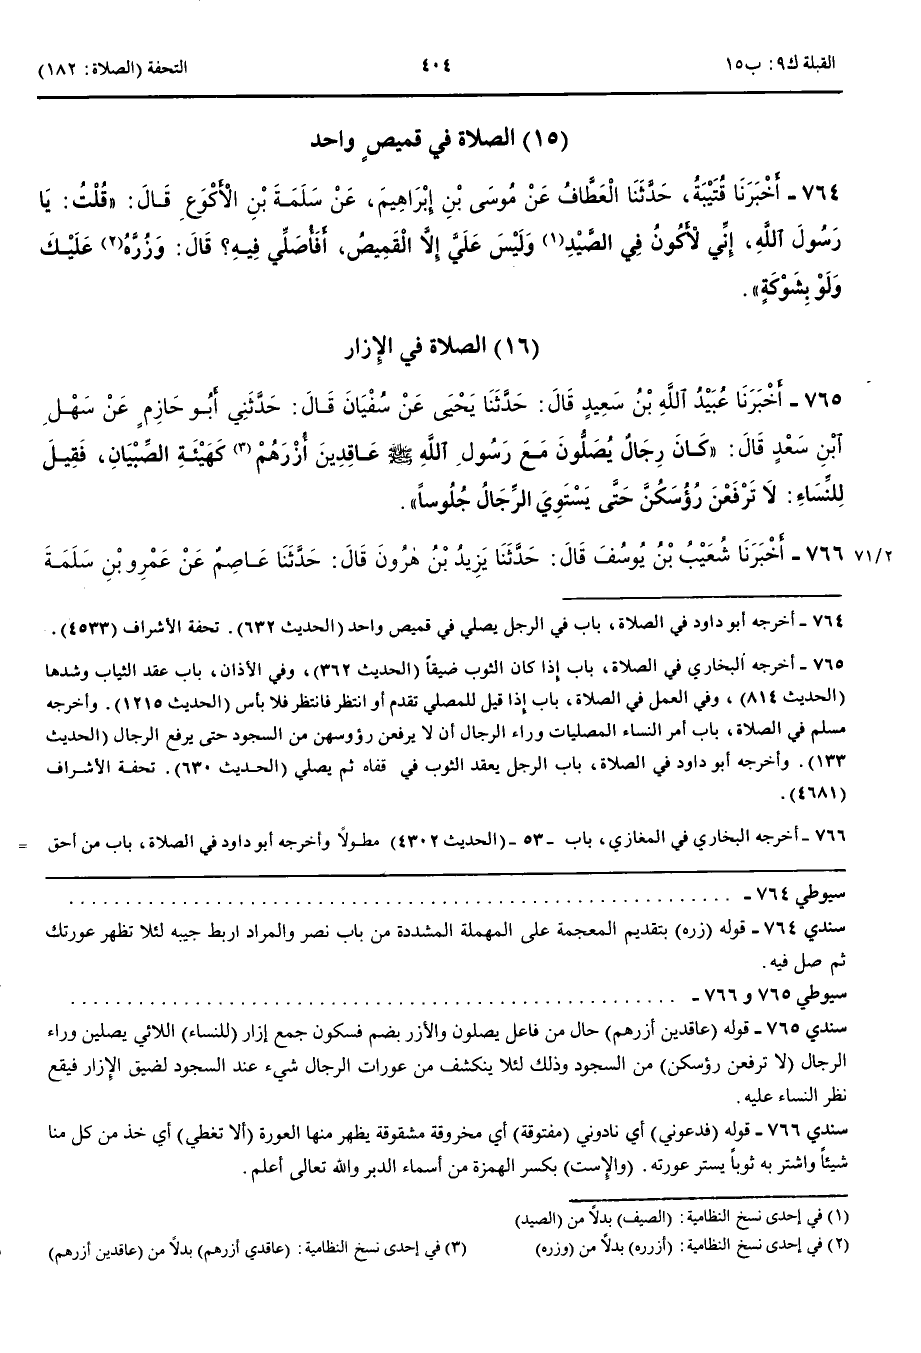 القبلة ك٩: ب١٥
٤٠٤
التحفة (الصلاة: ١٨٢)
(١٥) الصلاة في قميصٍ واحد
٧٦٤ - أَخْبَرَنَا قُتَيْبَةُ، حَدَّثَنَا الْعَطَّافُ عَنْ مُوسَى بْنِ إِبْرَاهِيمَ، عَنْ سَلَمَةَ بْنِ الْأَكْوَعِ قَالَ: «قُلْتُ: يَا
رَسُولَ اللَّهِ، إِنِّي لْأَكُونُ فِي الصَّيْدِ(١) وَلَيْسَ عَلَيَّ إِلَّا الْقَمِيصُ، أَفَأُصَلِّي فِيهِ؟ قَالَ: وَزُرَّهُ(٢) عَلَيْكَ
وَلَوْ بِشَوْكَةٍ».
(١٦) الصلاة في الإزار
٧٦٥ - أَخْبَرَنَا عُبَيْدُ اللَّهِ بْنُ سَعِيدٍ قَالَ: حَدَّثَنَا يَحْيَى عَنْ سُفْيَانَ قَالَ: حَدَّثَنِي أَبُو حَازِمٍ عَنْ سَهْلِ
ابْنِ سَعْدٍ قَالَ: «كَانَ رِجَالٌ يُصَلُّونَ مَعَ رَسُولِ اللَّهِ ﷺ عَاقِدِينَ أُزْرَهُمْ(٣) كَهَيْئَةِ الصِّبْيَانِ، فَقِيلَ
لِلنِّسَاءِ: لَا تَرْفَعْنَ رُؤُسَكُنَّ حَتَّى يَسْتَوِيَ الرِّجَالُ جُلُوساً».
٧١/٢ ٧٦٦ - أَخْبَرَنَا شُعَيْبُ بْنُ يُوسُفَ قَالَ: حَدَّثَنَا يَزِيدُ بْنُ هٰرُونَ قَالَ: حَدَّثَنَا عَاصِمٌ عَنْ عَمْرِو بْنِ سَلَمَةَ
٧٦٤ - أخرجه أبو داود في الصلاة، باب في الرجل يصلي في قميص واحد (الحديث ٦٣٢). تحفة الأشراف (٤٥٣٣).
٧٦٥ - أخرجه البخاري في الصلاة، باب إذا كان الثوب ضيقاً (الحديث ٣٦٢)، وفي الأذان، باب عقد الثياب وشدها
(الحديث ٨١٤)، وفي العمل في الصلاة، باب إذا قيل للمصلي تقدم أو انتظر فانتظر فلا بأس (الحديث ١٢١٥). وأخرجه
مسلم في الصلاة، باب أمر النساء المصليات وراء الرجال أن لا يرفعن رؤوسهن من السجود حتى يرفع الرجال (الحديث
١٣٣). وأخرجه أبو داود في الصلاة، باب الرجل يعقد الثوب في قفاه ثم يصلي (الحديث ٦٣٠). تحفة الأشراف
(٤٦٨١).
٧٦٦ - أخرجه البخاري في المغازي، باب - ٥٣ - (الحديث ٤٣٠٢) مطولاً وأخرجه أبو داود في الصلاة، باب من أحق =
سيوطي ٧٦٤ - . . . . . . . . . . . . . . . . . . . . . . . . . . . . . .
سندي ٧٦٤ - قوله (زره) بتقديم المعجمة على المهملة المشددة من باب نصر والمراد اربط جيبه لئلا تظهر عورتك
ثم صل فيه.
سيوطي ٧٦٥ و ٧٦٦ - . . . . . . . . . . . . . . . . . . . . . . . . . . . . . .
سندي ٧٦٥ - قوله (عاقدين أزرهم) حال من فاعل يصلون والأزر بضم فسكون جمع إزار (للنساء) اللائي يصلين وراء
الرجال (لا ترفعن رؤسكن) من السجود وذلك لئلا ينكشف من عورات الرجال شيء عند السجود لضيق الإزار فيقع
نظر النساء عليه.
سندي ٧٦٦ - قوله (فدعوني) أي نادوني (مفتوقة) أي مخروقة مشقوقة يظهر منها العورة (ألا تغطي) أي خذ من كل منا
شيئاً واشتر به ثوباً يستر عورته. (والإست) بكسر الهمزة من أسماء الدبر والله تعالى أعلم.
(١) في إحدى نسخ النظامية: (الصيف) بدلاً من (الصيد)
(٢) في إحدى نسخ النظامية: (أزرره) بدلاً من (وزره)
(٣) في إحدى نسخ النظامية: (عاقدي أزرهم) بدلاً من (عاقدين أزرهم)